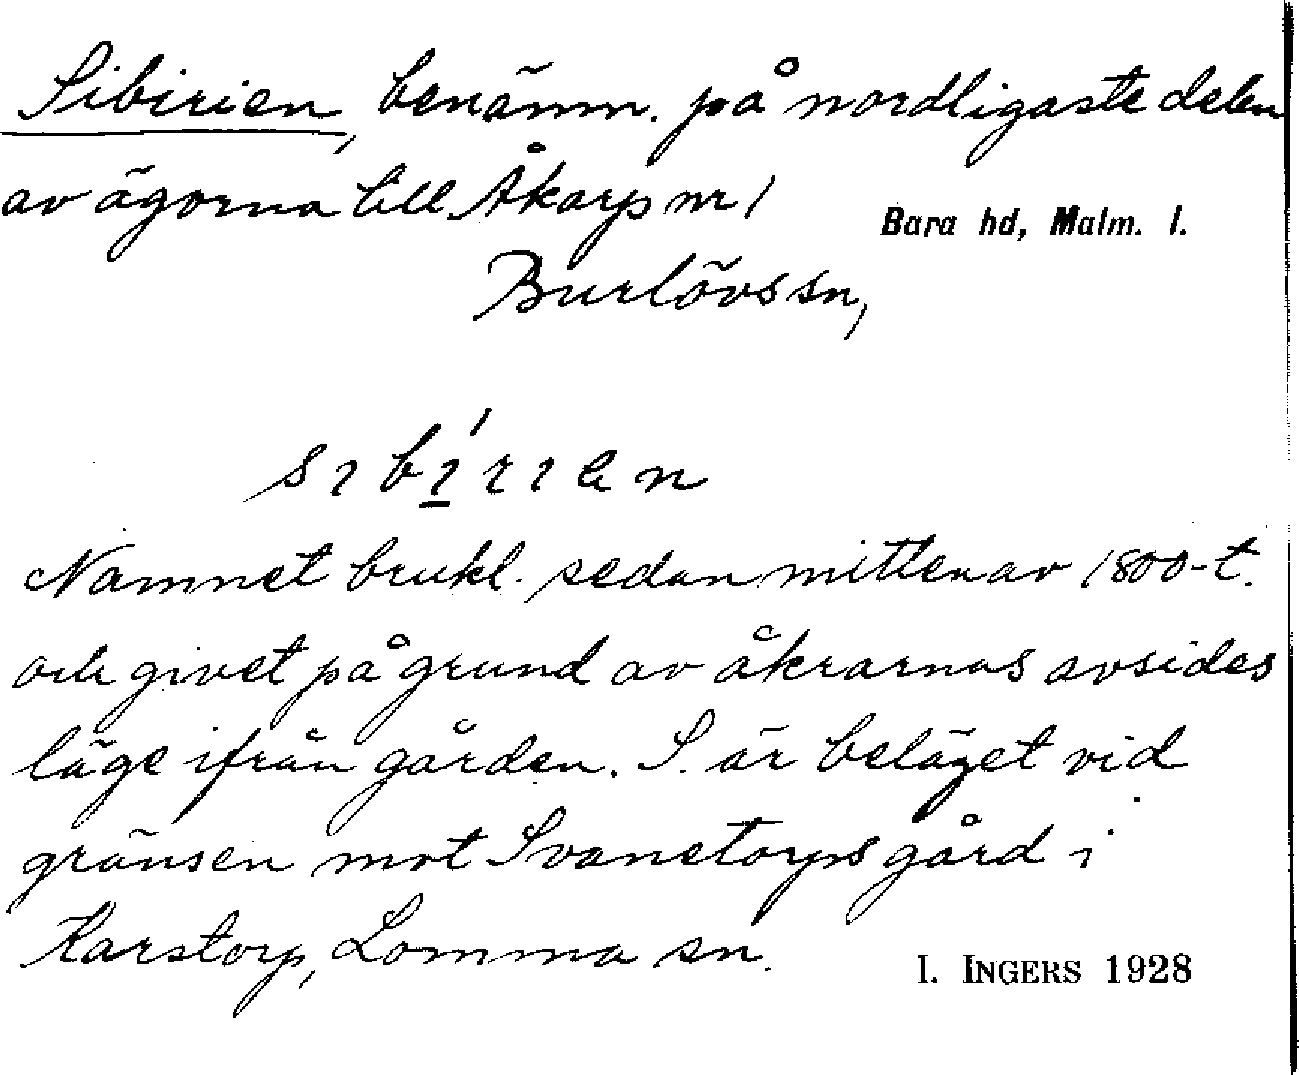 Sibirien, benämn. på nordligaste delen
av ägorna till Åkarp nr 1
Bara hd, Malm. l.
Burlövs sn,
sıbı́rıen
Namnet brukl. sedan mitten av 1800-t.
och givet på grund av åkrarnas avsides
läge ifrån gården. S. är beläget vid
gränsen mot Svanetorps gård i
Karstorp, Lomma sn.
I. INGERS 1928